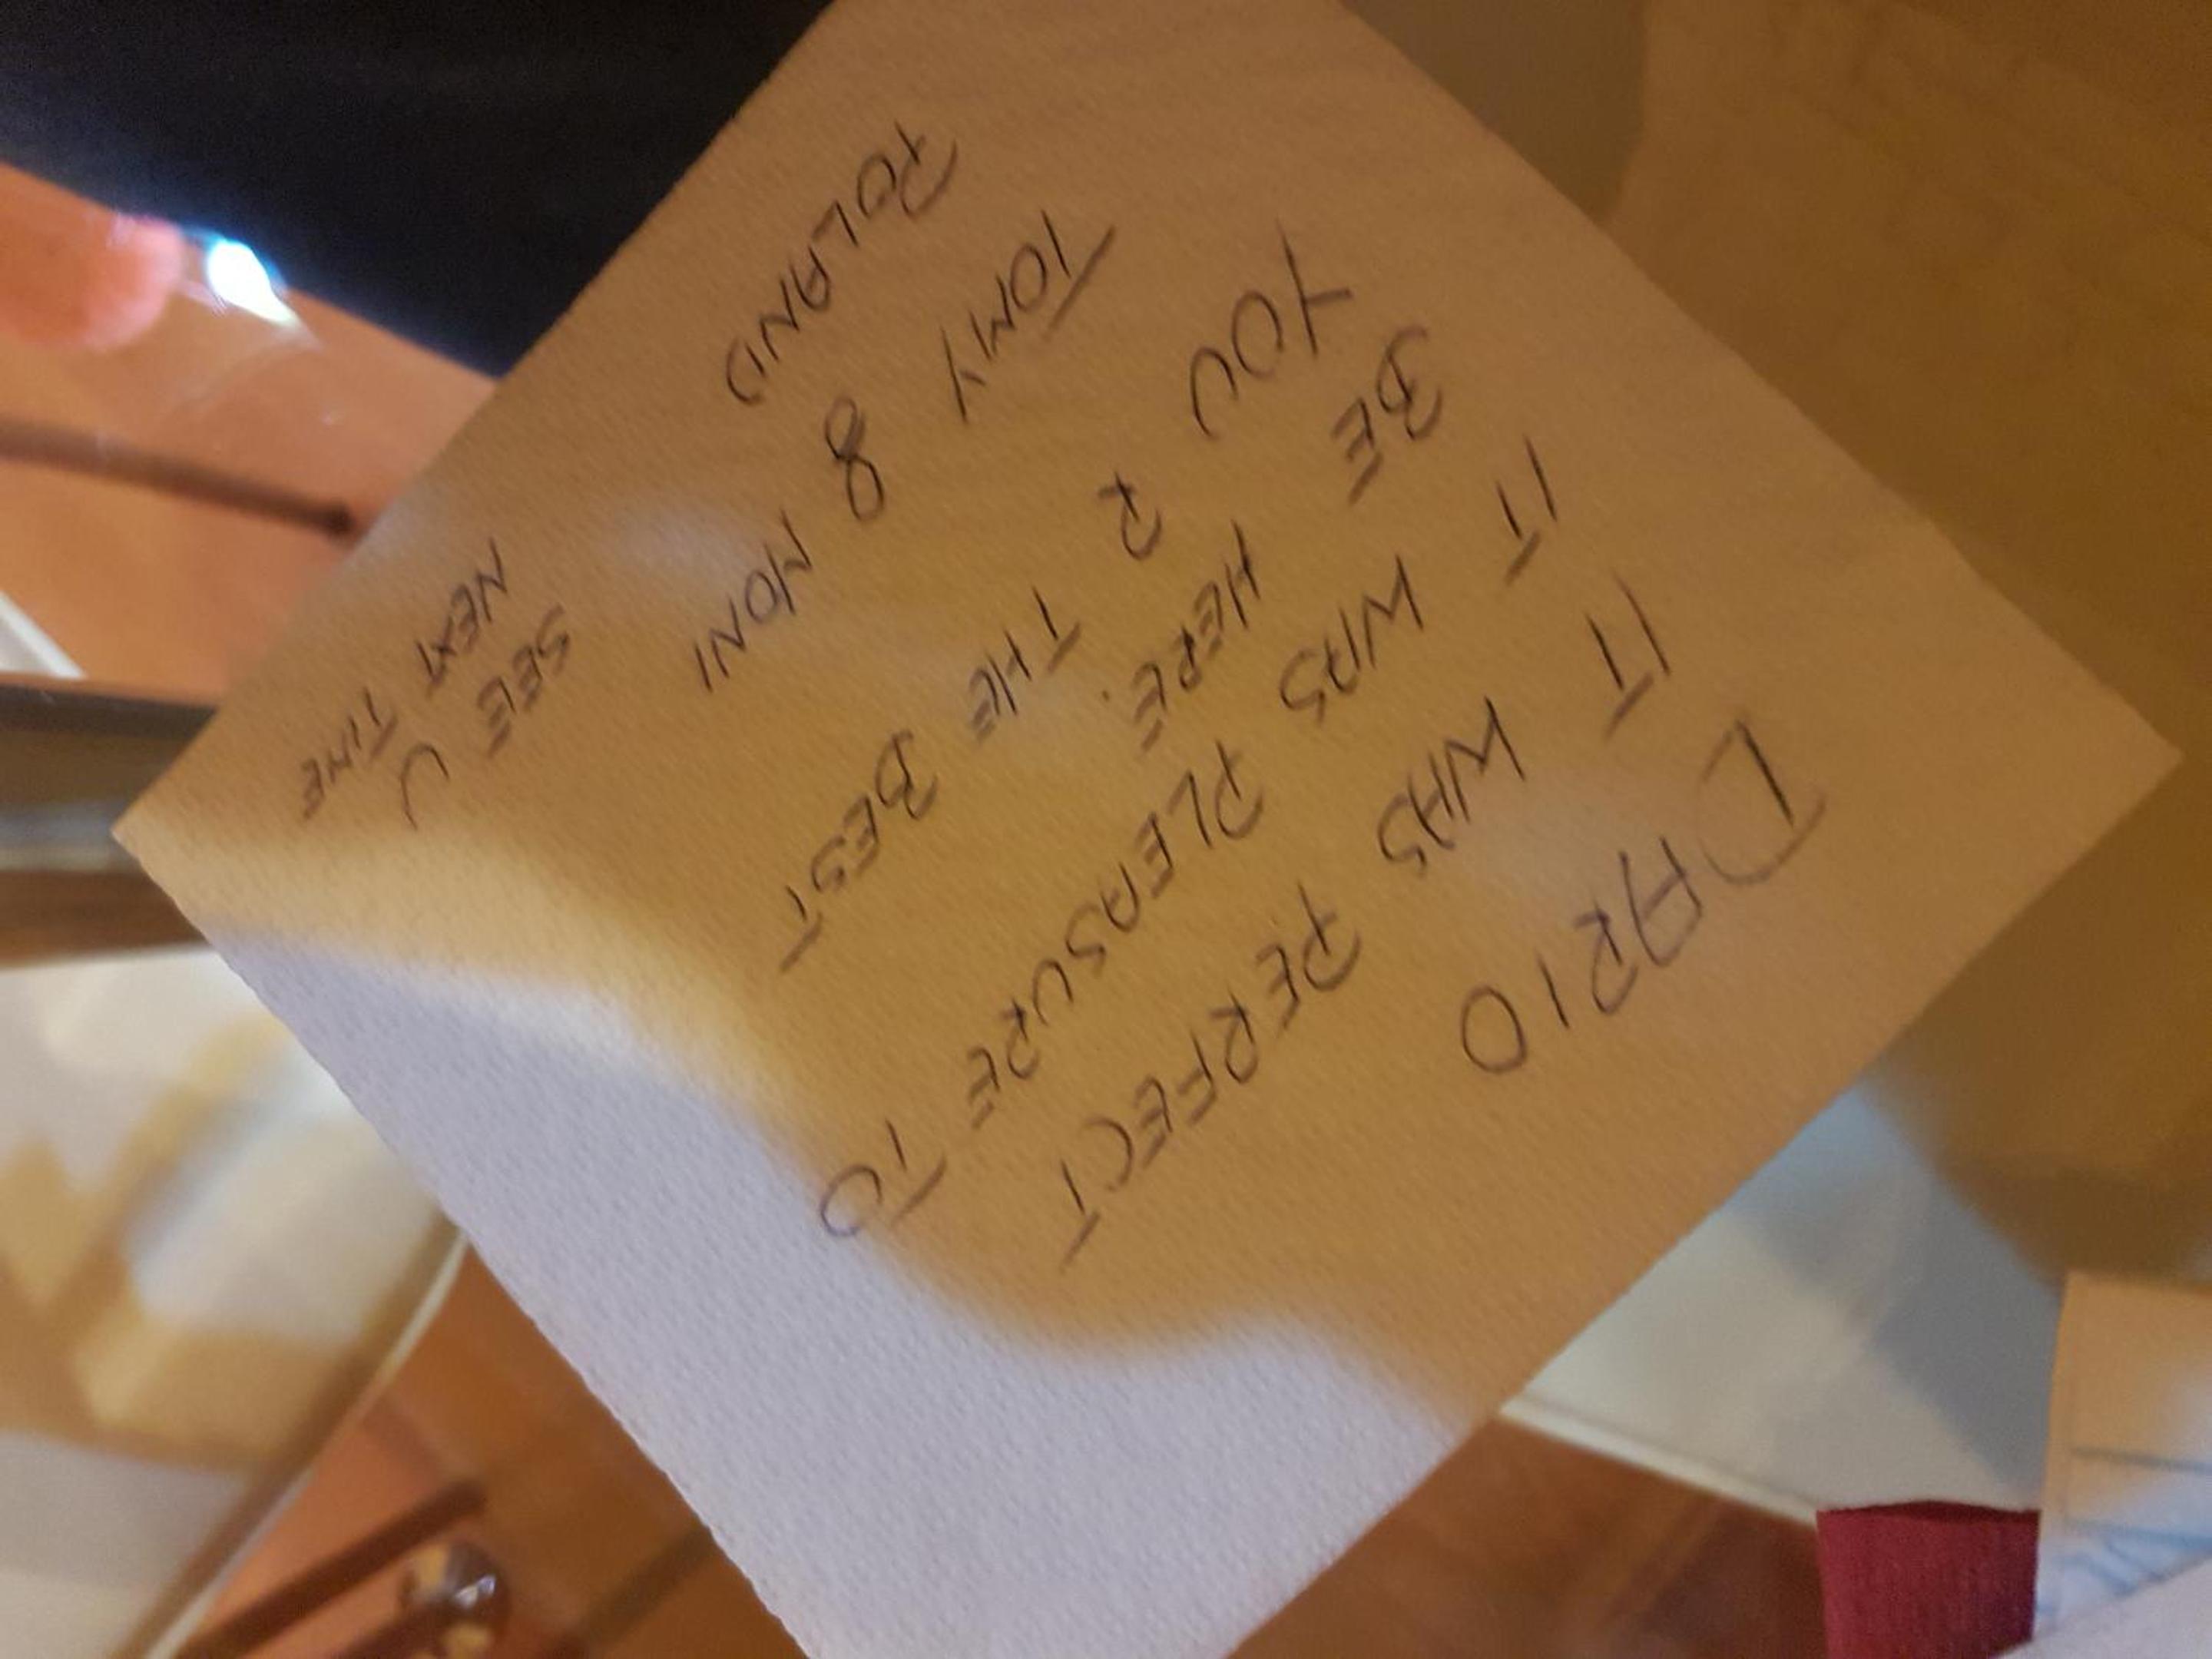 DARIO
IT WAS PERFECT
IT WAS PLEASURE TO
BE HERE.
YOU R THE BEST
TOMY 8 MONI
POLAND
SEE U
NEXT TIME